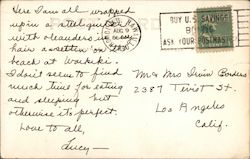 Here I am all wrapped
up in steel guitar
with oleanders in my
hair a settin on the
beach at Waikiki.
I don't seem to find
much time for eating
and sleeping but
otherwise its perfect.
Love to all,
Lucy —
AUG 9
BUY U.S. SAVINGS
ASK YOUR POSTMASTER
Mr & Mrs Irwin Borders
2387 Teviot St.
Los Angeles
Calif.